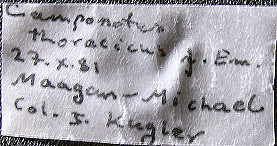 Camponotus
thoracicus f. Em.
27.X.81
Maagan-Michael
Col. J. Kugler